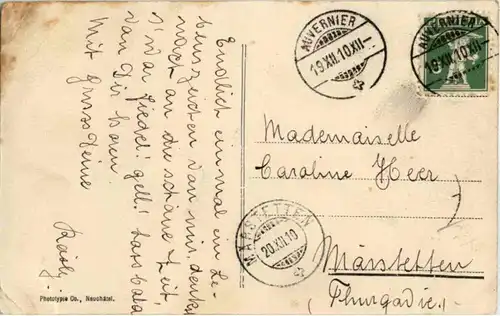 Endlich einmal ein Le-
benszeichen von mir, denkst
noch an die schöne Zeit,
s'war fidel! gell! Lass bald
von Dir hören.
Mit Gruss Deine
AUVERNIER
19.XII.10.XII-
AUVERNIER
19.XII.10.XII-
Mademaiselle
Caroline Heer
MÄRSTETTEN
20.XII.10
Märstetten
(Thurgovie.)
Phototypie Co., Neuchâtel.